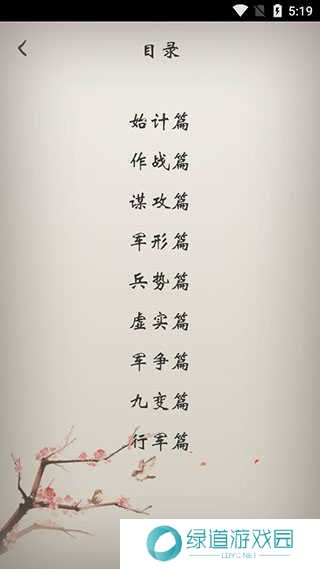 5:19
目录
始计篇
作战篇
谋攻篇
军形篇
兵势篇
虚实篇
军争篇
九变篇
行军篇
绿道游戏园
LDYC.NET